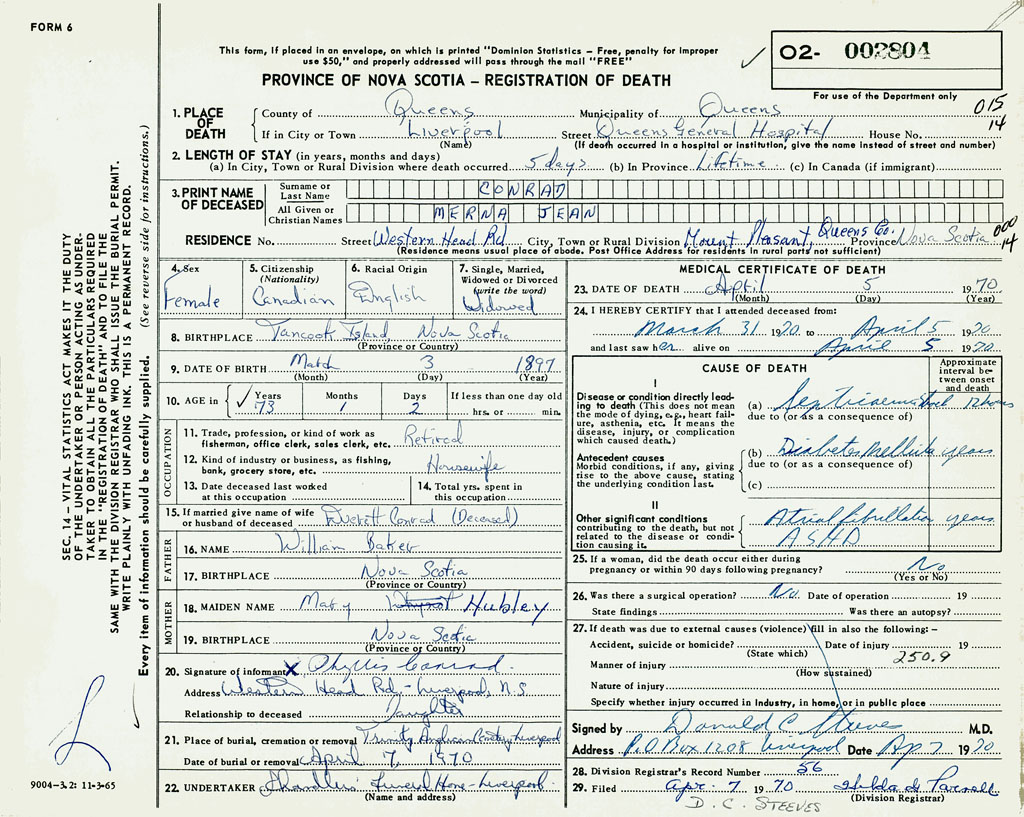 FORM 6
This form, if placed in an envelope, on which is printed "Dominion Statistics – Free, penalty for improper
use $50," and properly addressed will pass through the mail "FREE"
PROVINCE OF NOVA SCOTIA – REGISTRATION OF DEATH
02- 002804
For use of the Department only
015
14
1. PLACE OF DEATH
County of Queens Municipality of Queens
If in City or Town Liverpool Street Queens General Hospital House No.
(Name) (If death occurred in a hospital or institution, give the name instead of street and number)
2. LENGTH OF STAY (in years, months and days)
(a) In City, Town or Rural Division where death occurred 5 days (b) In Province Lifetime (c) In Canada (if immigrant)
3. PRINT NAME OF DECEASED
Surname or Last Name CONRAD
All Given or Christian Names MERNA JEAN
000
14
RESIDENCE No. Street Western Head Rd City, Town or Rural Division Mount Pleasant, Queens Co. Province Nova Scotia
(Residence means usual place of abode. Post Office Address for residents in rural parts not sufficient)
4. Sex Female
5. Citizenship (Nationality) Canadian
6. Racial Origin English
7. Single, Married, Widowed or Divorced (write the word) Widowed
8. BIRTHPLACE Tancook Island, Nova Scotia
(Province or Country)
9. DATE OF BIRTH March 3 1897
(Month) (Day) (Year)
10. AGE in Years 73 Months 1 Days 2 If less than one day old hrs. or min.
OCCUPATION
11. Trade, profession, or kind of work as fisherman, office clerk, sales clerk, etc. Retired
12. Kind of industry or business, as fishing, bank, grocery store, etc. Housewife
13. Date deceased last worked at this occupation
14. Total yrs. spent in this occupation
15. If married give name of wife or husband of deceased Conrad (Deceased)
FATHER
16. NAME William Baker
17. BIRTHPLACE Nova Scotia
(Province or Country)
MOTHER
18. MAIDEN NAME Mary Hubley
19. BIRTHPLACE Nova Scotia
(Province or Country)
20. Signature of informant X Phyllis Conrad
Address Western Head Rd. - Liverpool, N.S
Relationship to deceased Daughter
21. Place of burial, cremation or removal Trinity Anglican Cemetery Liverpool
Date of burial or removal April 7, 1970
22. UNDERTAKER Chandlers Funeral Home - Liverpool
(Name and address)
MEDICAL CERTIFICATE OF DEATH
23. DATE OF DEATH April 5 1970
(Month) (Day) (Year)
24. I HEREBY CERTIFY that I attended deceased from:
March 31 1970 to April 5 1970
and last saw her alive on April 5 1970
CAUSE OF DEATH
Approximate interval between onset and death
I
Disease or condition directly leading to death (This does not mean the mode of dying, e.g., heart failure, asthenia, etc. It means the disease, injury, or complication which caused death.)
(a) 12 hours
due to (or as a consequence of)
Antecedent causes
Morbid conditions, if any, giving rise to the above cause, stating the underlying condition last.
(b) Diabetes Mellitus years
due to (or as a consequence of)
(c)
II
Other significant conditions contributing to the death, but not related to the disease or condition causing it.
Atrial fibrillation years
ASHD
25. If a woman, did the death occur either during pregnancy or within 90 days following pregnancy? No
(Yes or No)
26. Was there a surgical operation? No. Date of operation 19
State findings Was there an autopsy?
27. If death was due to external causes (violence) fill in also the following: –
Accident, suicide or homicide? Date of injury 19
(State which) 250.9
Manner of injury
(How sustained)
Nature of injury
Specify whether injury occurred in industry, in home, or in public place
Signed by Donald C Steeves M.D.
Address P.O Box 1208 Liverpool Date Ap 7 1970
28. Division Registrar's Record Number 56
29. Filed Apr. 7 1970
(Division Registrar)
D. C. STEEVES
SEC. 14 – VITAL STATISTICS ACT MAKES IT THE DUTY
OF THE UNDERTAKER OR PERSON ACTING AS UNDER-
TAKER TO OBTAIN ALL THE PARTICULARS REQUIRED
IN THE "REGISTRATION OF DEATH" AND TO FILE THE
SAME WITH THE DIVISION REGISTRAR WHO SHALL ISSUE THE BURIAL PERMIT.
WRITE PLAINLY WITH UNFADING INK. THIS IS A PERMANENT RECORD.
Every item of information should be carefully supplied. (See reverse side for instructions.)
9004-3.2: 11-3-65